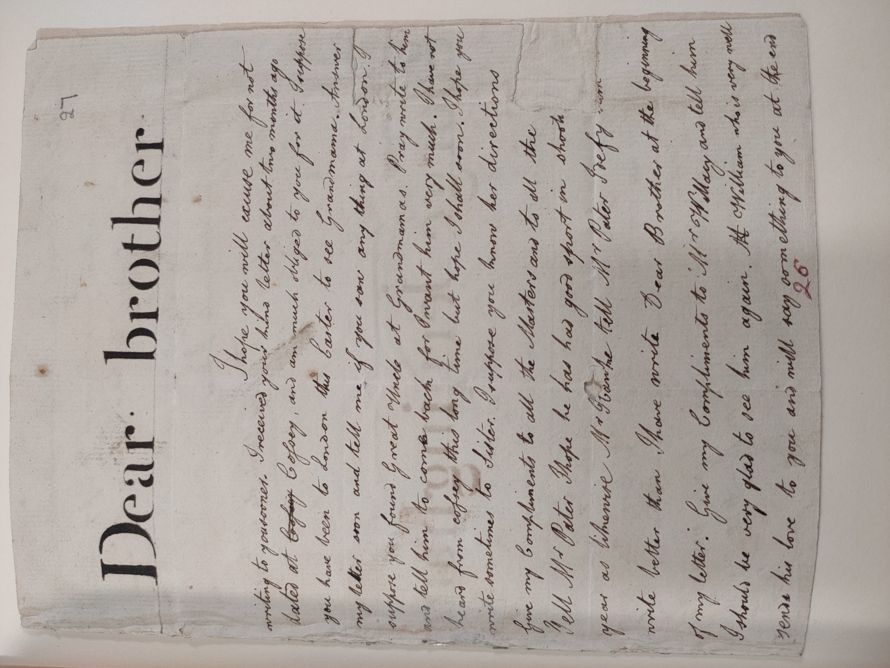 27
Dear brother
I hope you will excuse me for not
writing to you sooner. I received your kind letter about two months ago
dated at Cofsey, and am much obliged to you for it. I suppose
you have been to London this Easter to see Grandmama. Answer
my letter soon and tell me if you saw any thing at London. I
suppose you found Great Uncle at Grandmamas. Pray write to him
and tell him to come back for I want him very much. I have not
heard from cofsey this long time but hope I shall soon. I hope you
write sometimes to Sister. I suppose you know her directions
Give my Compliments to all the Masters and to all the
Tell Mr Pater I hope he has had good sport in shooting
year as likewise Mr Hawke tell Mr Pater I defy him
write better than I have write Dear Brother at the beginning
of my letter. Give my Compliments to Mr Willacy and tell him
I should be very glad to see him again. William who is very well
sends his love to you and will say something to you at the end
26